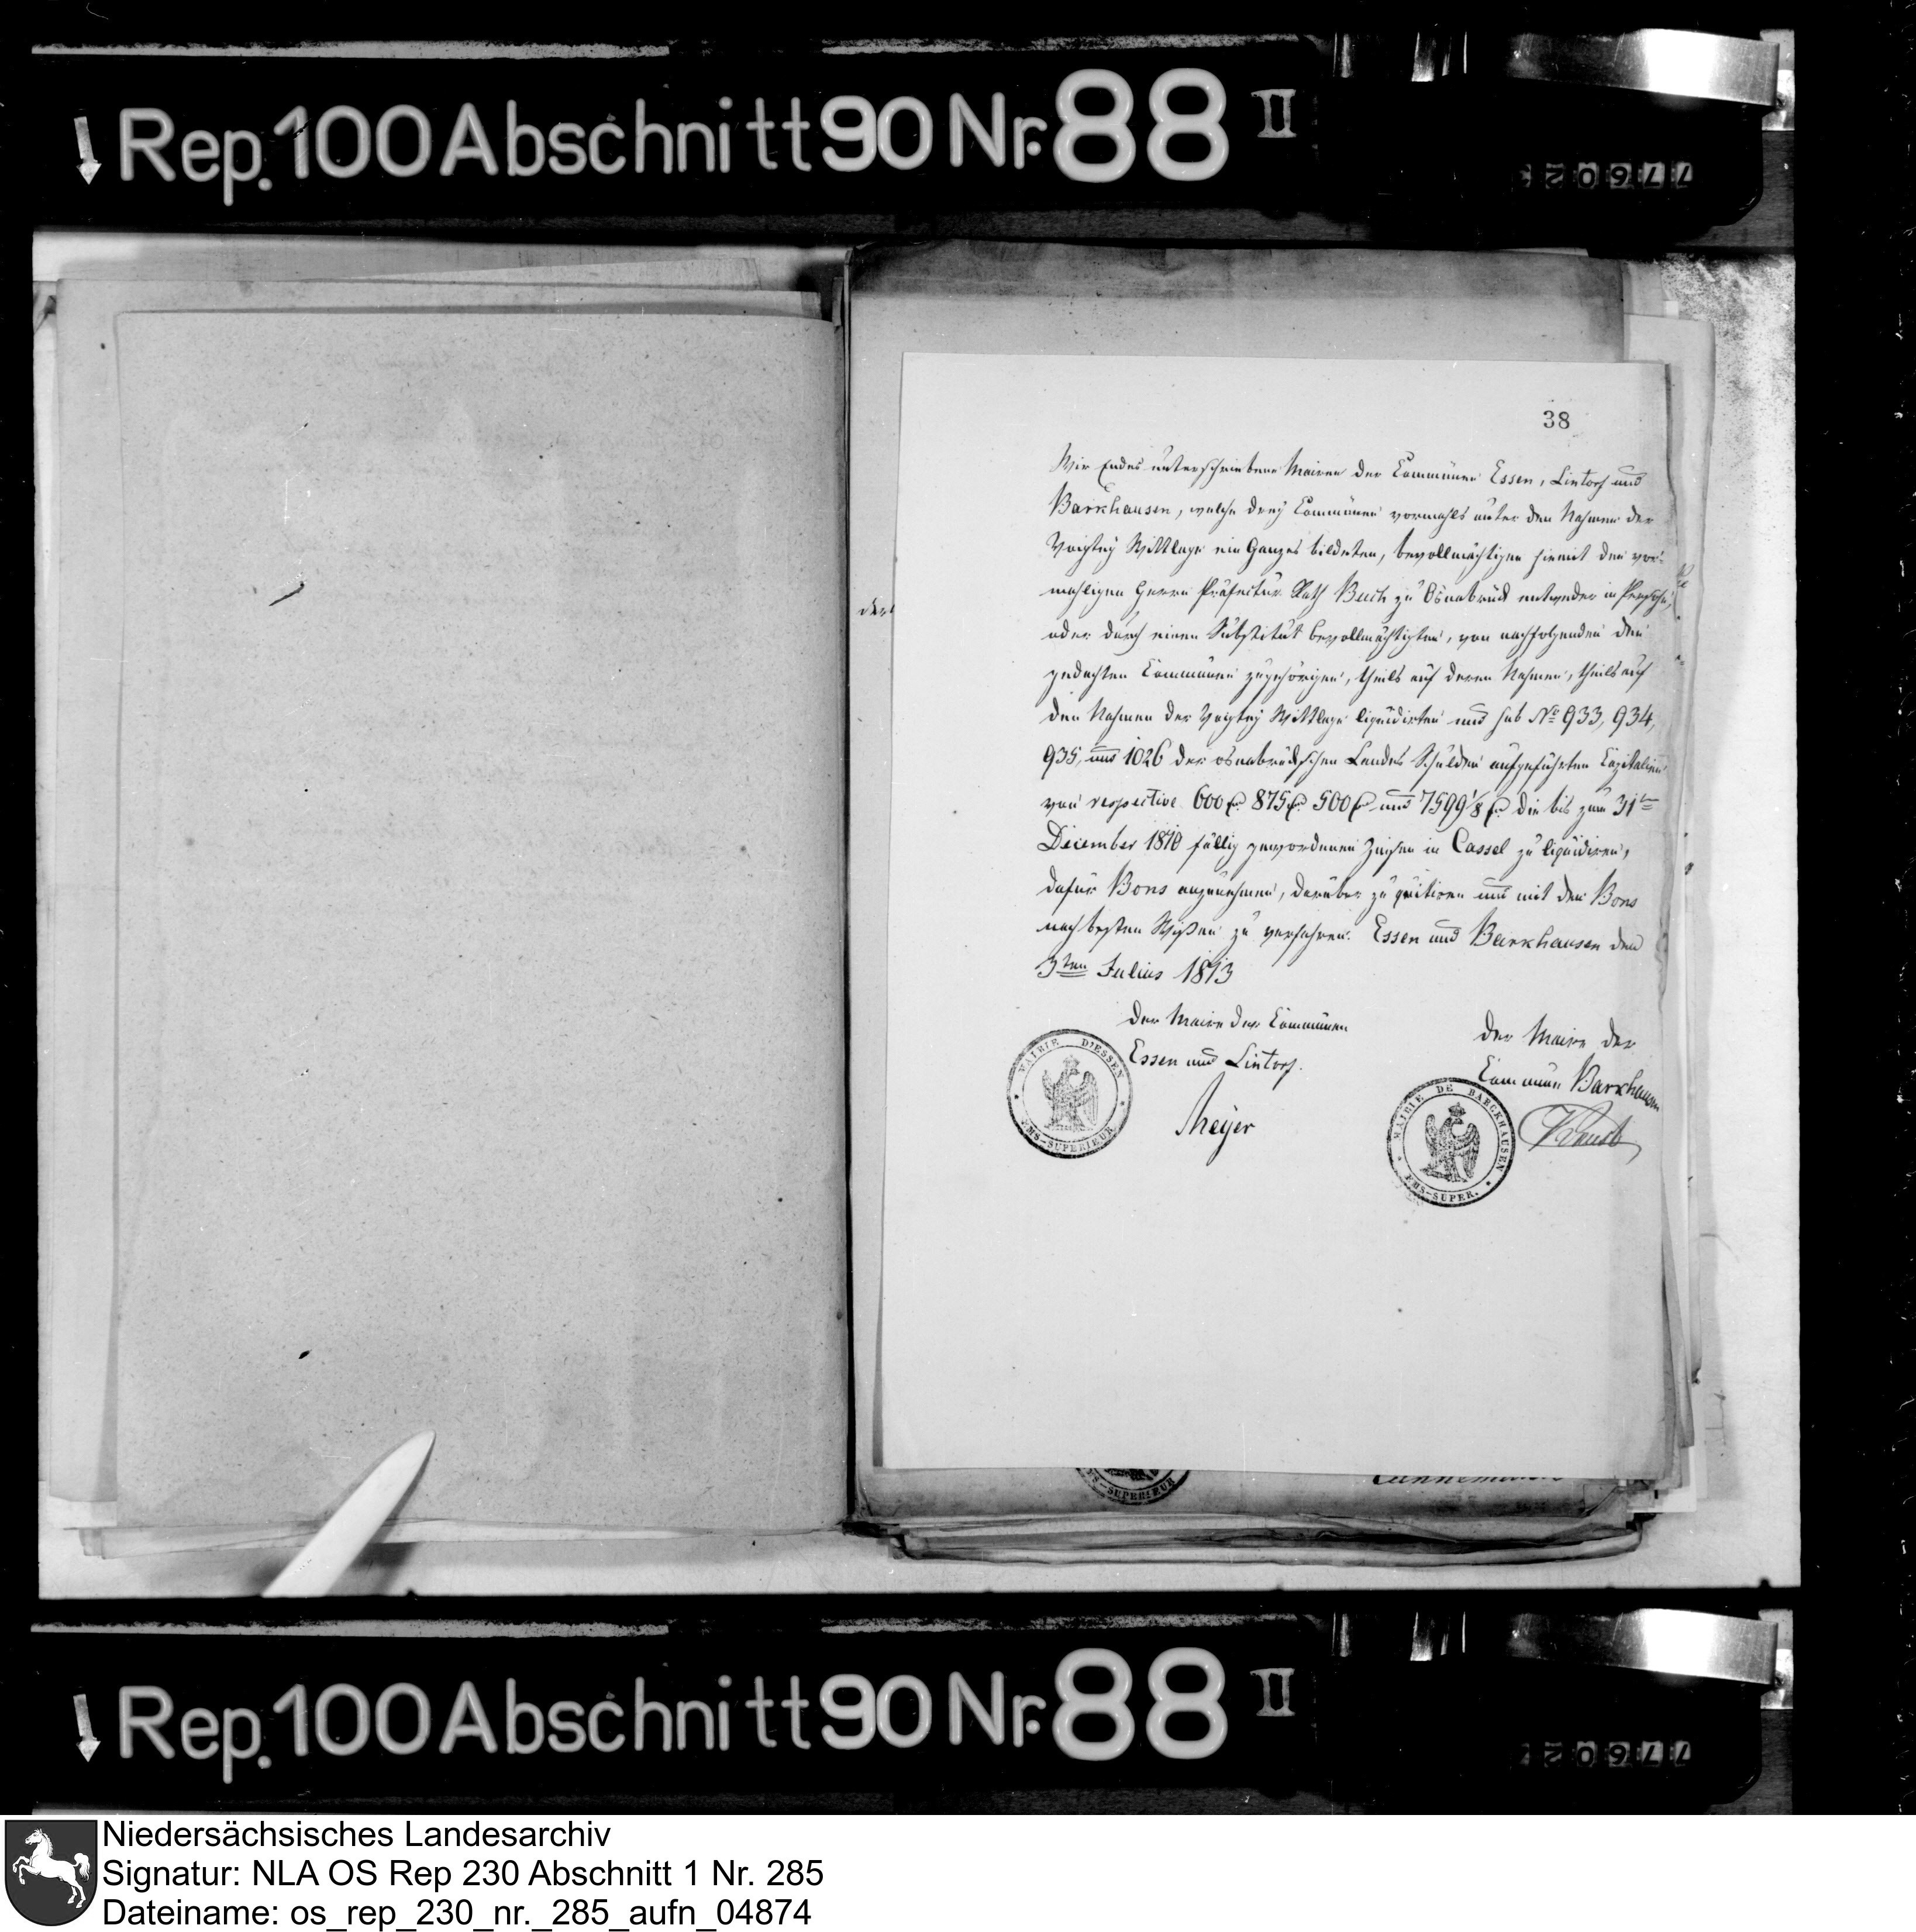 Rep. 100 Abschnitt 90 Nr. 88 II
77602
38
Wir Endes unterschriebene Mairen der Communen Essen, Lintorf und
Barkhausen, welche drey Communen vormahls unter den Nahmen der
Voigtey Wittlage ein Ganzes bildeten, bevollmächtigen hiemit den vor-
mahligen Herrn Präfectur Rath Buch zu Osnabrück entweder in Persohn,
oder durch einen Substitut bevollmächtigten, von nachfolgenden den
gedachten Communen zugehörigen, theils auf deren Nahmen, theils auf
den Nahmen der Voigtey Wittlage liquidirten und sub No 933, 934,
935, und 1026 der osnabrückschen Landes Schulden aufgeführten Capitalien
von respective 600 875 500 und 7599 1/8 die bis zum 31ten
December 1810 fällig gewordenen Zinsen in Cassel zu liquidiren,
dafür Bons anzunehmen, darüber zu quitiren und mit den Bons
nach besten Wißen zu verfahren. Essen und Barkhausen den
3ten Julius 1813
der Maire der Communen
Essen und Lintorf.
Meyer
der Maire der
Commune Barkhausen
MAIRIE D'ESSEN
EMS-SUPERIEUR
MAIRIE DE BARCKHAUSEN
EMS-SUPER.
der
MS-SUPERIEUR
Rep. 100 Abschnitt 90 Nr. 88 II
77602
Niedersächsisches Landesarchiv
Signatur: NLA OS Rep 230 Abschnitt 1 Nr. 285
Dateiname: os_rep_230_nr._285_aufn_04874